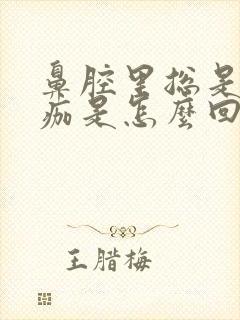 鼻腔里总是
痂是怎麼回
王腊梅